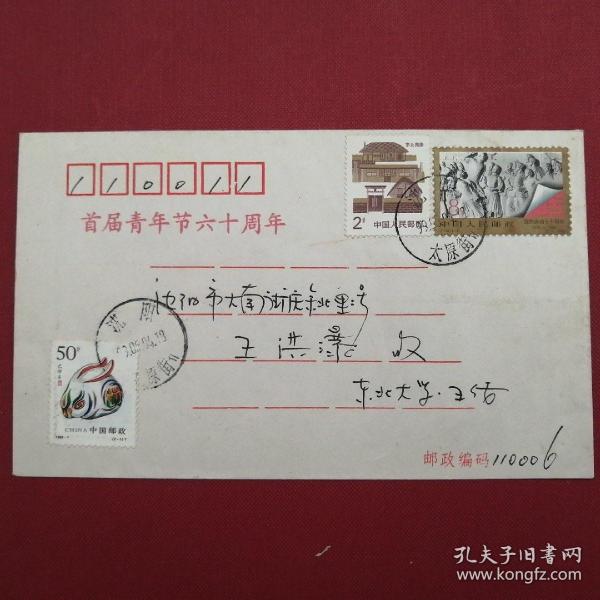 110011
首届青年节六十周年
2分
中国人民邮政
8
中国人民邮政
太原街
沈阳
99.05.04.19
太原街
50分
CHINA 中国邮政
沈阳市大南街庆余北里号
王洪泽 收
东北大学·王佑
邮政编码 110006
孔夫子旧书网
www.kongfz.com